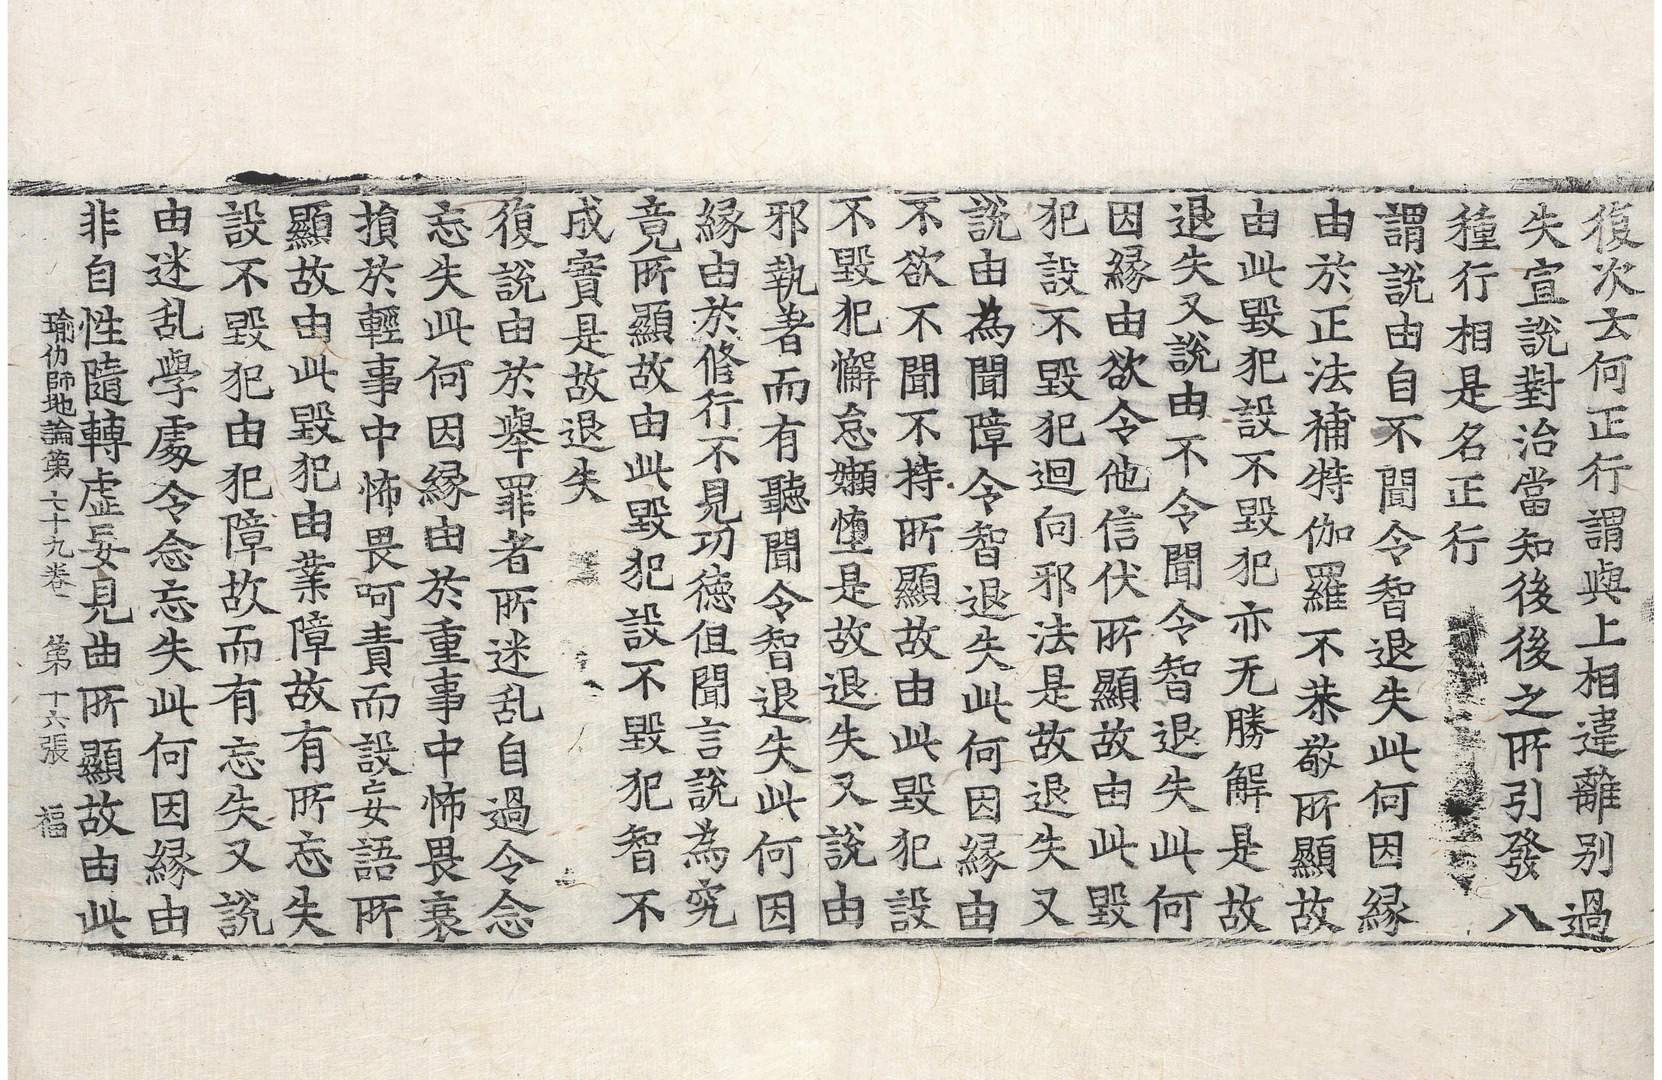 復次云何正行謂與上相違離別過
失宣說對治當知後後之所引發八
種行相是名正行
謂說由自不聞令智退失此何因縁
由於正法補特伽羅不恭敬所顯故
由此毀犯設不毀犯亦无勝解是故
退失又說由不令聞令智退失此何
因縁由欲令他信伏所顯故由此毀
犯設不毀犯迴向邪法是故退失又
說由為聞障令智退失此何因縁由
不欲不聞不持所顯故由此毀犯設
不毀犯懈怠嬾墮是故退失又說由
邪執著而有聽聞令智退失此何因
縁由於修行不見功德但聞言說為究
竟所顯故由此毀犯設不毀犯智不
成實是故退失
復說由於舉罪者所迷乱自過令念
忘失此何因縁由於重事中怖畏衰
損於輕事中怖畏呵責而設妄語所
顯故由此毀犯由業障故有所忘失
設不毀犯由犯障故而有忘失又說
由迷乱學處令念忘失此何因縁由
非自性隨轉虛妄見曲所顯故由此
瑜伽師地論第七十九卷 第十六張 福